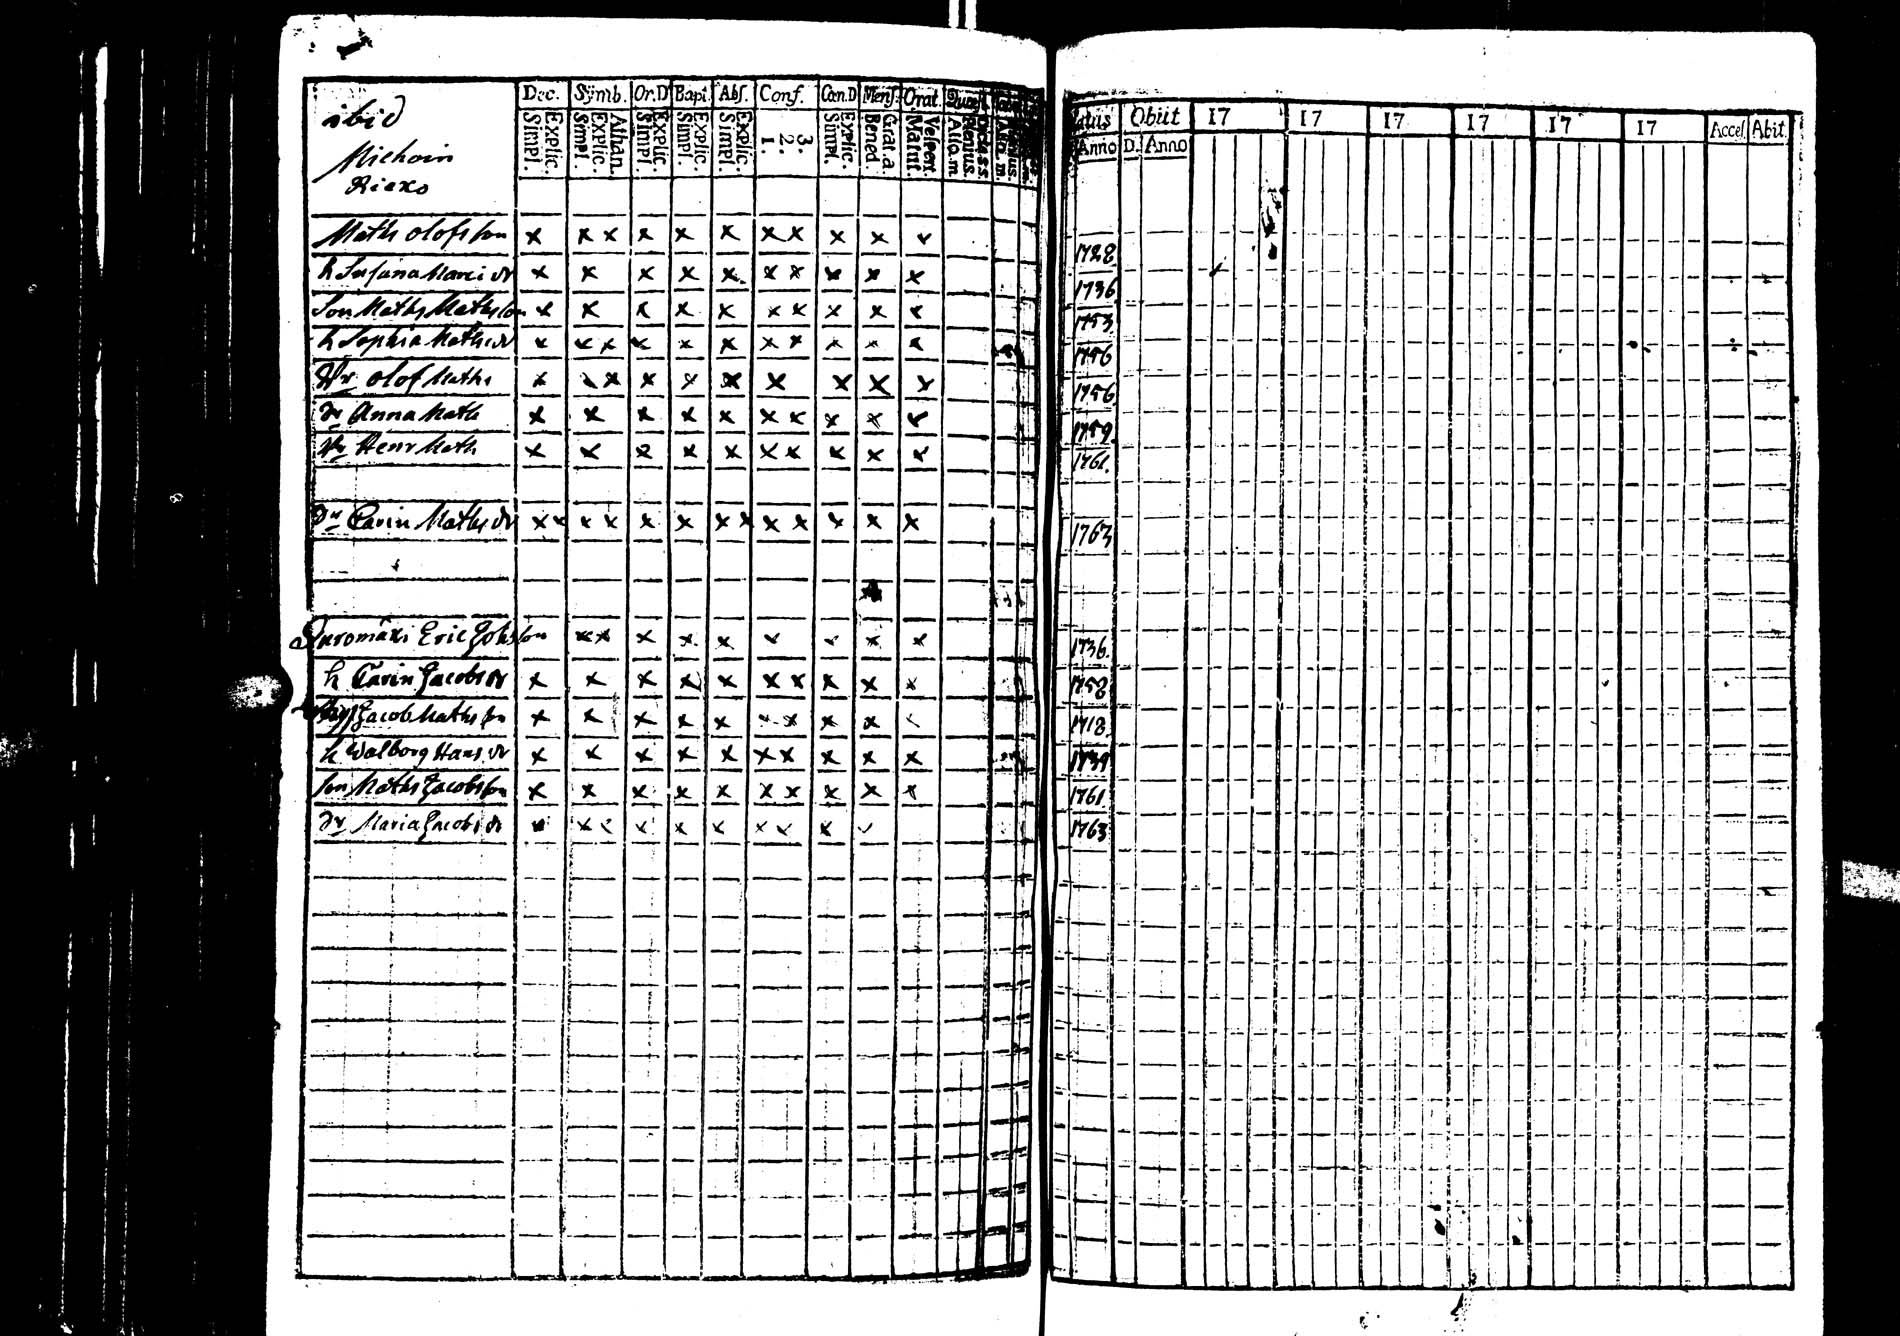 ibid
Dec. Symb. Or.D Bapt. Abs. Conf. Cœn.D Mens. Orat.
Explic. Simpl. Athan. Explic. Simpl. Explic. Simpl. Explic. Simpl. Explic. Simpl. 3. 2. 1. Explic. Simpl. Grat.a. Bened. Vespert. Matut.
Obiit 17 17 17 17 17 17 Access. Abit.
Anno D. Anno
Michoin
Riexo
Maths Olofsson x x x x x x x x x x x 1728
h Susana Marci dr x x x x x x x x x x 1736
Son Maths Mathsson x x x x x x x x x x 1753.
h Sophia Maths dr x x x x x x x x x x x 1756
Olof Maths x x x x x x x x x x 1756
dr Anna Math x x x x x x x x x x 1759.
Henr Math x x x x x x x x x x 1761.
dr Carin Maths dr x x x x x x x x x x x x x 1763
Eric Johsson x x x x x x x x x 1736.
h Carin Jacobs dr x x x x x x x x x x 1758
Jacob Mathsson x x x x x x x x x x 1718.
h Walborg Hans dr x x x x x x x x x x 1739
Son Maths Jacobsson x x x x x x x x x x 1761
dr Maria Jacobs dr x x x x x x x x x x 1763